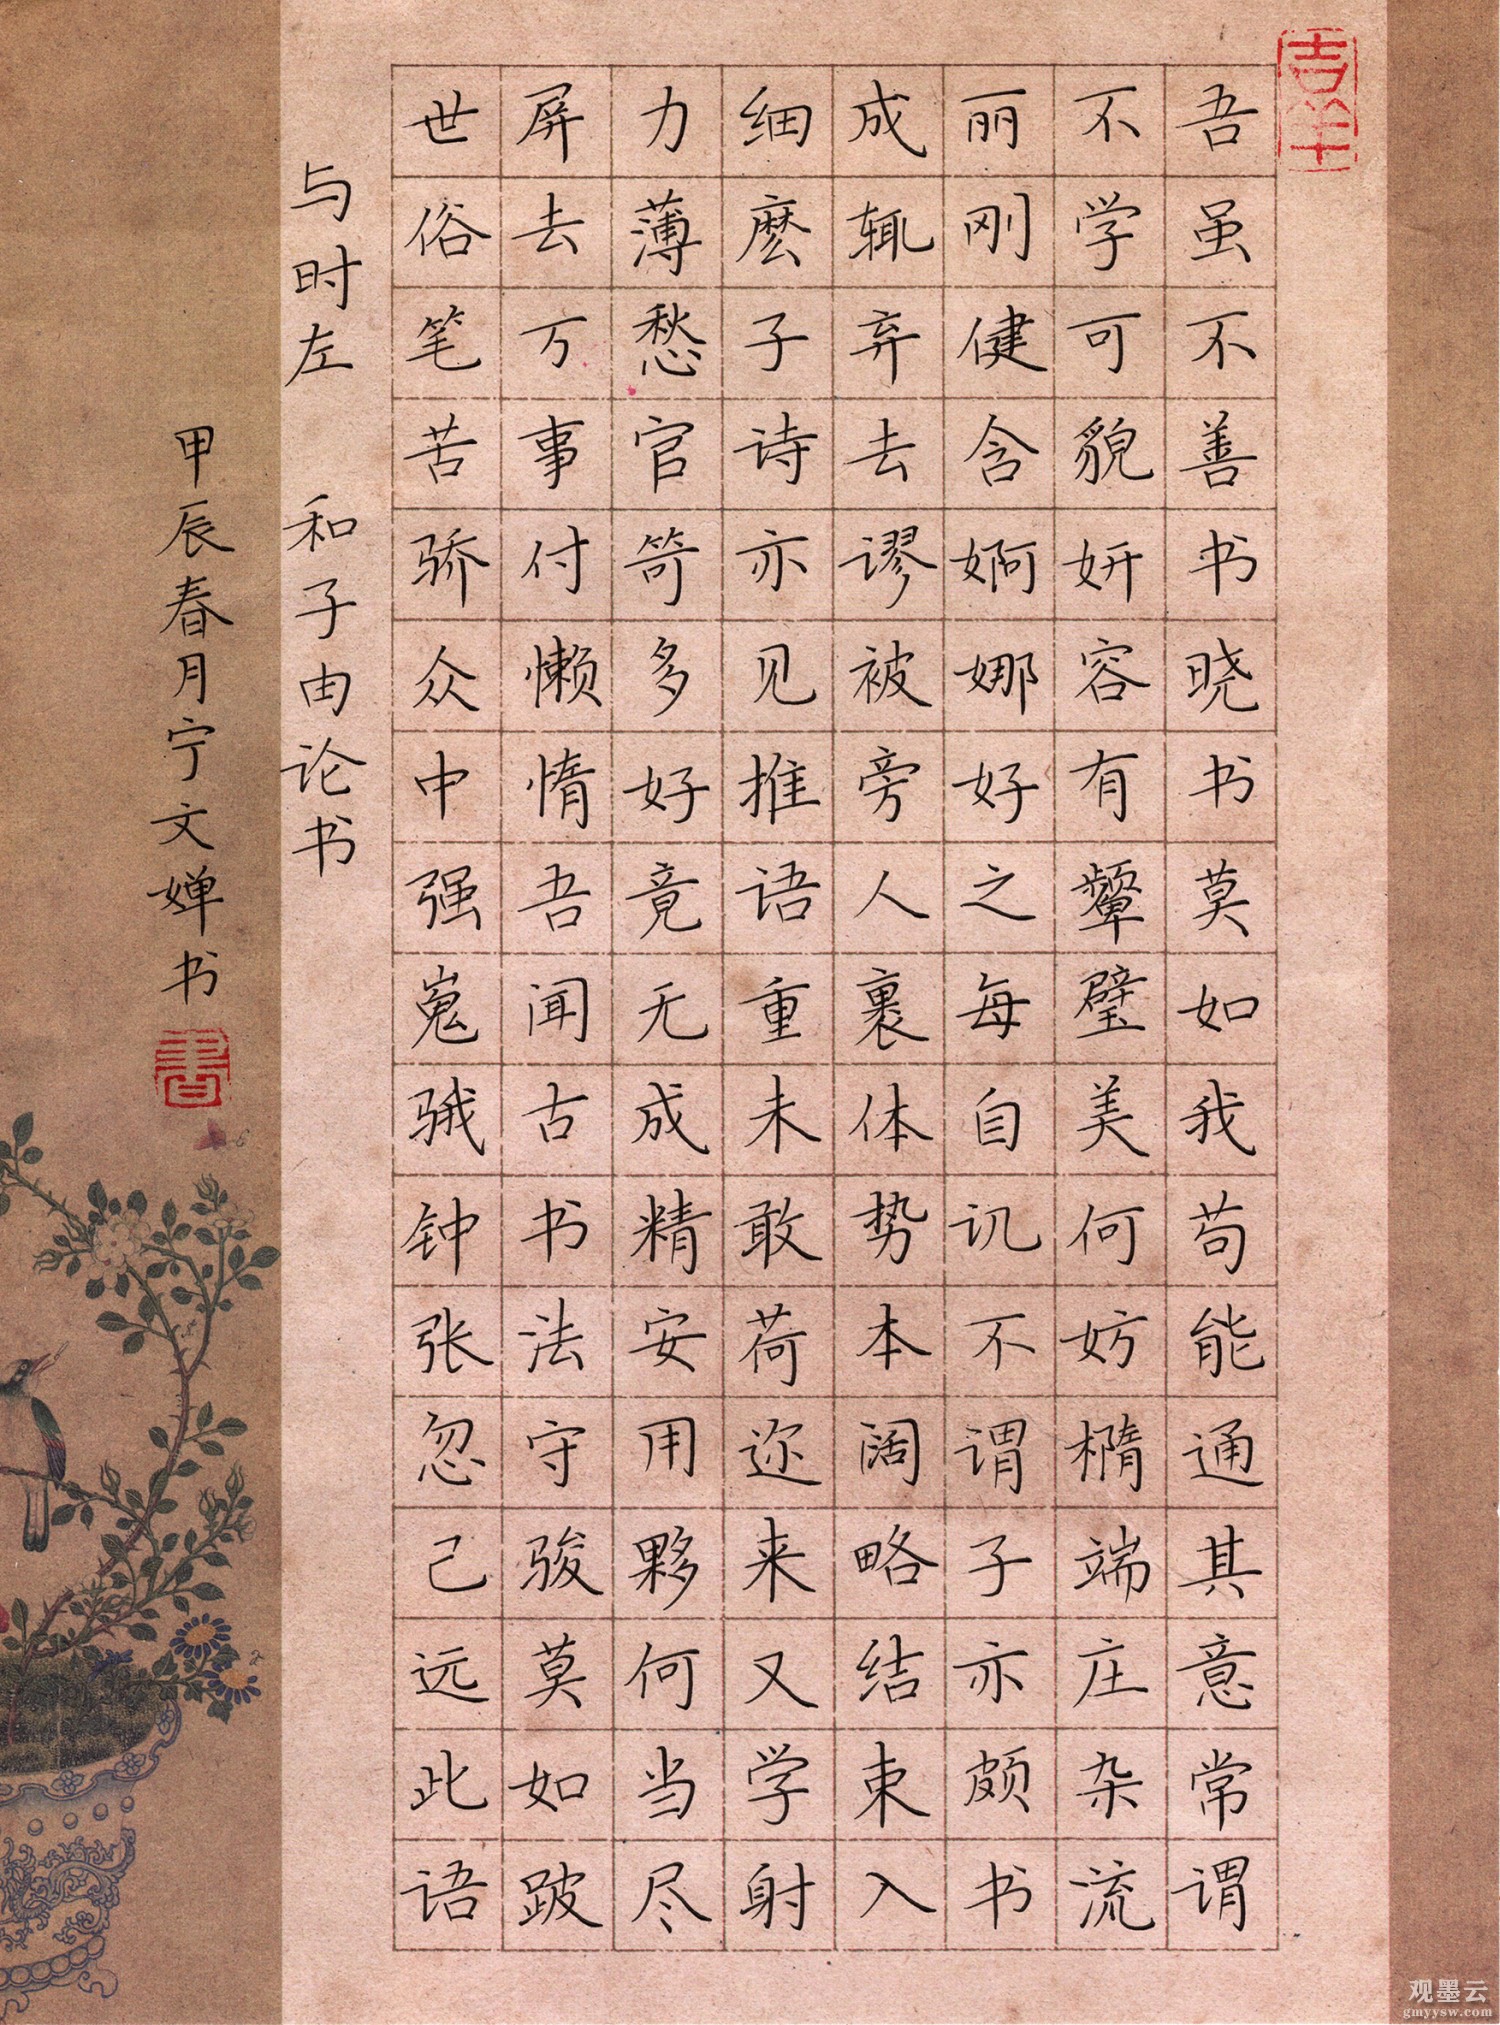 吉羊
吾虽不善书晓书莫如我苟能通其意常谓
不学可貌妍容有颦璧美何妨椭端庄杂流
丽刚健含婀娜好之每自讥不谓子亦颇书
成辄弃去谬被旁人裹体势本阔略结束入
细麽子诗亦见推语重未敢荷迩来又学射
力薄愁官笴多好竟无成精安用夥何当尽
屏去万事付懒惰吾闻古书法守骏莫如跛
世俗笔苦骄众中强嵬騀钟张忽己远此语
与时左 和子由论书
甲辰春月宁文婵书
書
观墨云
gmyysw.com